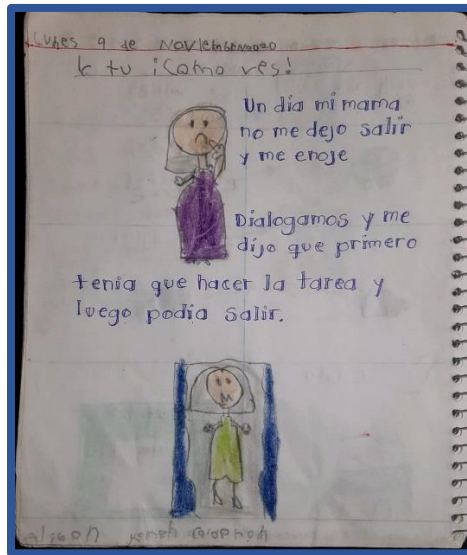 Lunes 9 de Noviembre 2020
k tu ¡Como ves!
Un día mi mama
no me dejo salir
y me enoje
Dialogamos y me
dijo que primero
tenia que hacer la tarea y
luego podía salir.